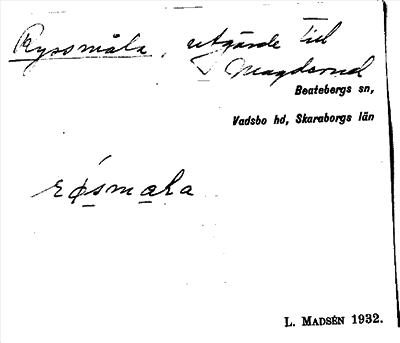 Ryssmåla, utgärde till
Magderud
Beatebergs sn,
Vadsbo hd, Skaraborgs län
røsmala
L. MADSÉN 1932.